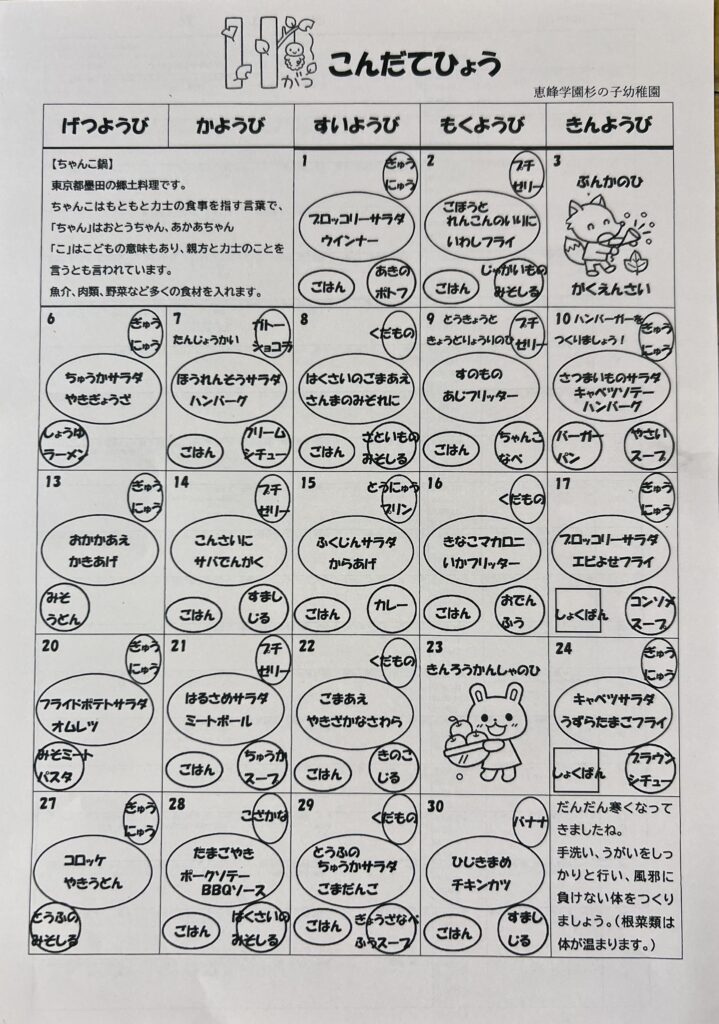 11がつ
こんだてひょう
恵峰学園杉の子幼稚園
げつようび
かようび
すいようび
もくようび
きんようび
【ちゃんこ鍋】
東京都墨田の郷土料理です。
ちゃんこはもともと力士の食事を指す言葉で、
「ちゃん」はおとうちゃん、あかあちゃん
「こ」はこどもの意味もあり、親方と力士のことを
言うとも言われています。
魚介、肉類、野菜など多くの食材を入れます。
1
ぎゅう
にゅう
ブロッコリーサラダ
ウインナー
ごはん
あきの
ポトフ
2
プチ
ゼリー
ごぼうと
れんこんのいりに
いわしフライ
ごはん
じゃがいもの
みそしる
3
ぶんかのひ
がくえんさい
6
ぎゅう
にゅう
ちゅうかサラダ
やきぎょうざ
しょうゆ
ラーメン
7
たんじょうかい
ガトー
ショコラ
ほうれんそうサラダ
ハンバーグ
ごはん
クリーム
シチュー
8
くだもの
はくさいのごまあえ
さんまのみぞれに
ごはん
さといもの
みそしる
9 とうきょうと
きょうどりょうりのひ
プチ
ゼリー
すのもの
あじフリッター
ごはん
ちゃんこ
なべ
10 ハンバーガーを
つくりましょう！
ぎゅう
にゅう
さつまいものサラダ
キャベツソテー
ハンバーグ
バーガー
パン
やさい
スープ
13
ぎゅう
にゅう
おかかあえ
かきあげ
みそ
うどん
14
プチ
ゼリー
こんさいに
サバでんがく
ごはん
すまし
じる
15
とうにゅう
プリン
ふくじんサラダ
からあげ
ごはん
カレー
16
くだもの
きなこマカロニ
いかフリッター
ごはん
おでん
ふう
17
ぎゅう
にゅう
ブロッコリーサラダ
エビよせフライ
しょくぱん
コンソメ
スープ
20
ぎゅう
にゅう
フライドポテトサラダ
オムレツ
みそミート
パスタ
21
プチ
ゼリー
はるさめサラダ
ミートボール
ごはん
ちゅうか
スープ
22
くだもの
ごまあえ
やきざかなさわら
ごはん
きのこ
じる
23
きんろうかんしゃのひ
24
ぎゅう
にゅう
キャベツサラダ
うずらたまごフライ
しょくぱん
ブラウン
シチュー
27
ぎゅう
にゅう
コロッケ
やきうどん
とうふの
みそしる
28
こざかな
たまごやき
ポークソテー
BBQソース
ごはん
はくさいの
みそしる
29
くだもの
とうふの
ちゅうかサラダ
ごまだんご
ごはん
ぎょうざなべ
ふうスープ
30
バナナ
ひじきまめ
チキンカツ
ごはん
すまし
じる
だんだん寒くなって
きましたね。
手洗い、うがいをしっ
かりと行い、風邪に
負けない体をつくり
ましょう。（根菜類は
体が温まります。）